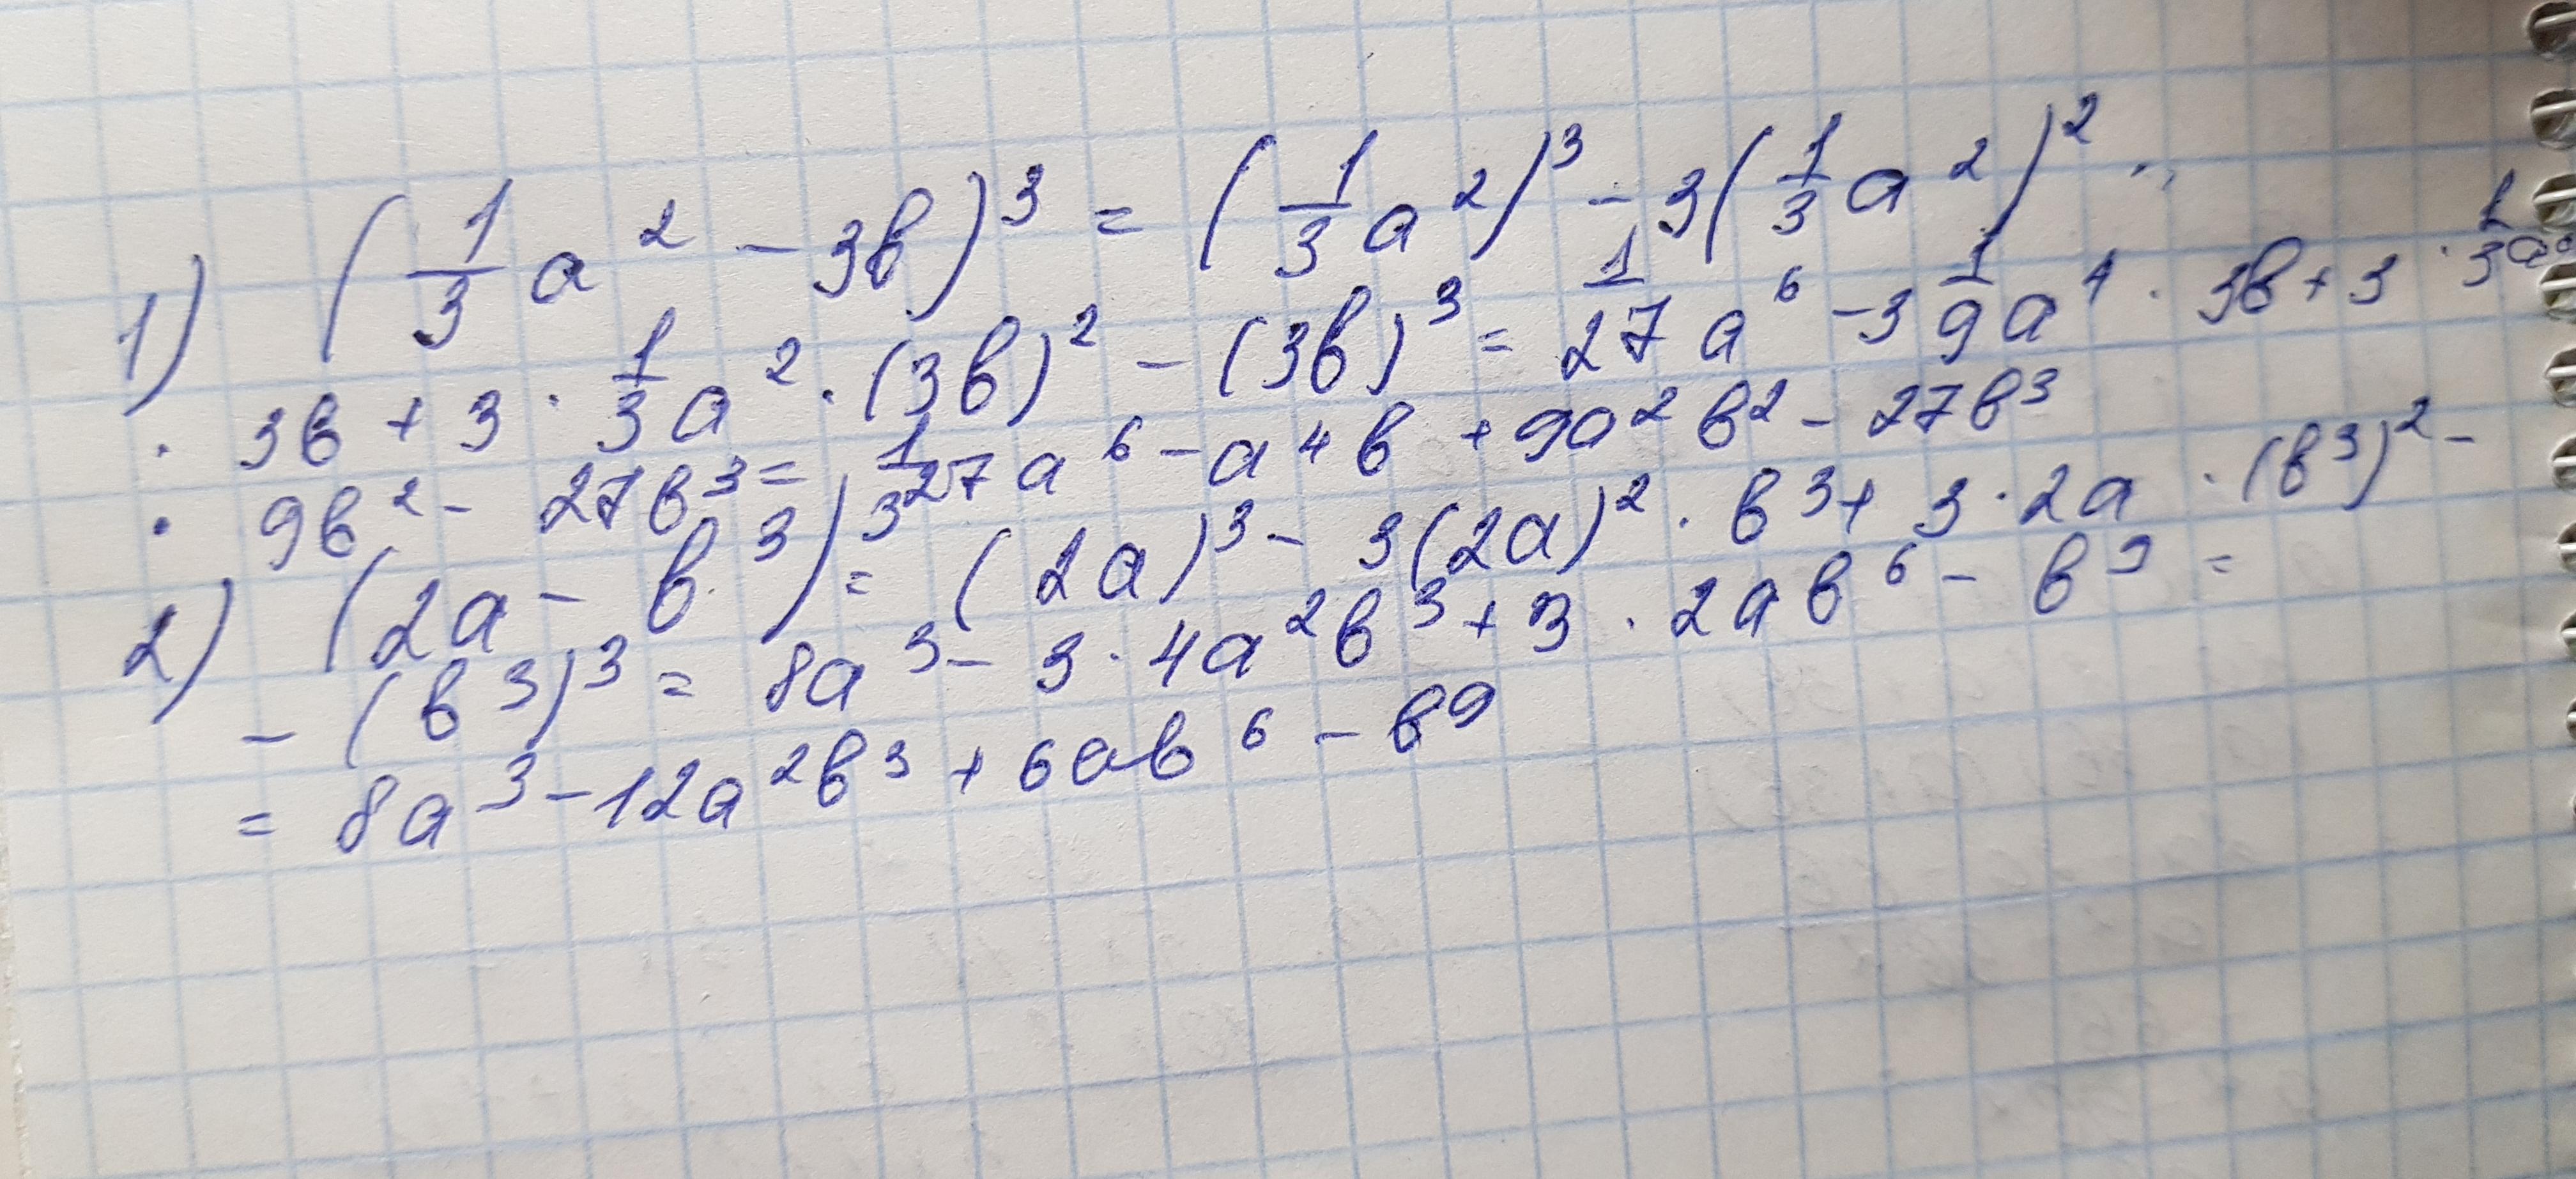 1) (1/3 a² - 3b)³ = (1/3 a²)³ - 3(1/3 a²)² ·
· 3b + 3 · 1/3 a² · (3b)² - (3b)³ = 1/27 a⁶ - 3 1/9 a⁴ · 3b + 3 · 1/3 a
· 9b² - 27b³ = 1/27 a⁶ - a⁴b + 9a²b² - 27b³
2) (2a - b³)³ = (2a)³ - 3(2a)² · b³ + 3 · 2a · (b³)² -
- (b³)³ = 8a³ - 3 · 4a²b³ + 3 · 2ab⁶ - b⁹ =
= 8a³ - 12a²b³ + 6ab⁶ - b⁹